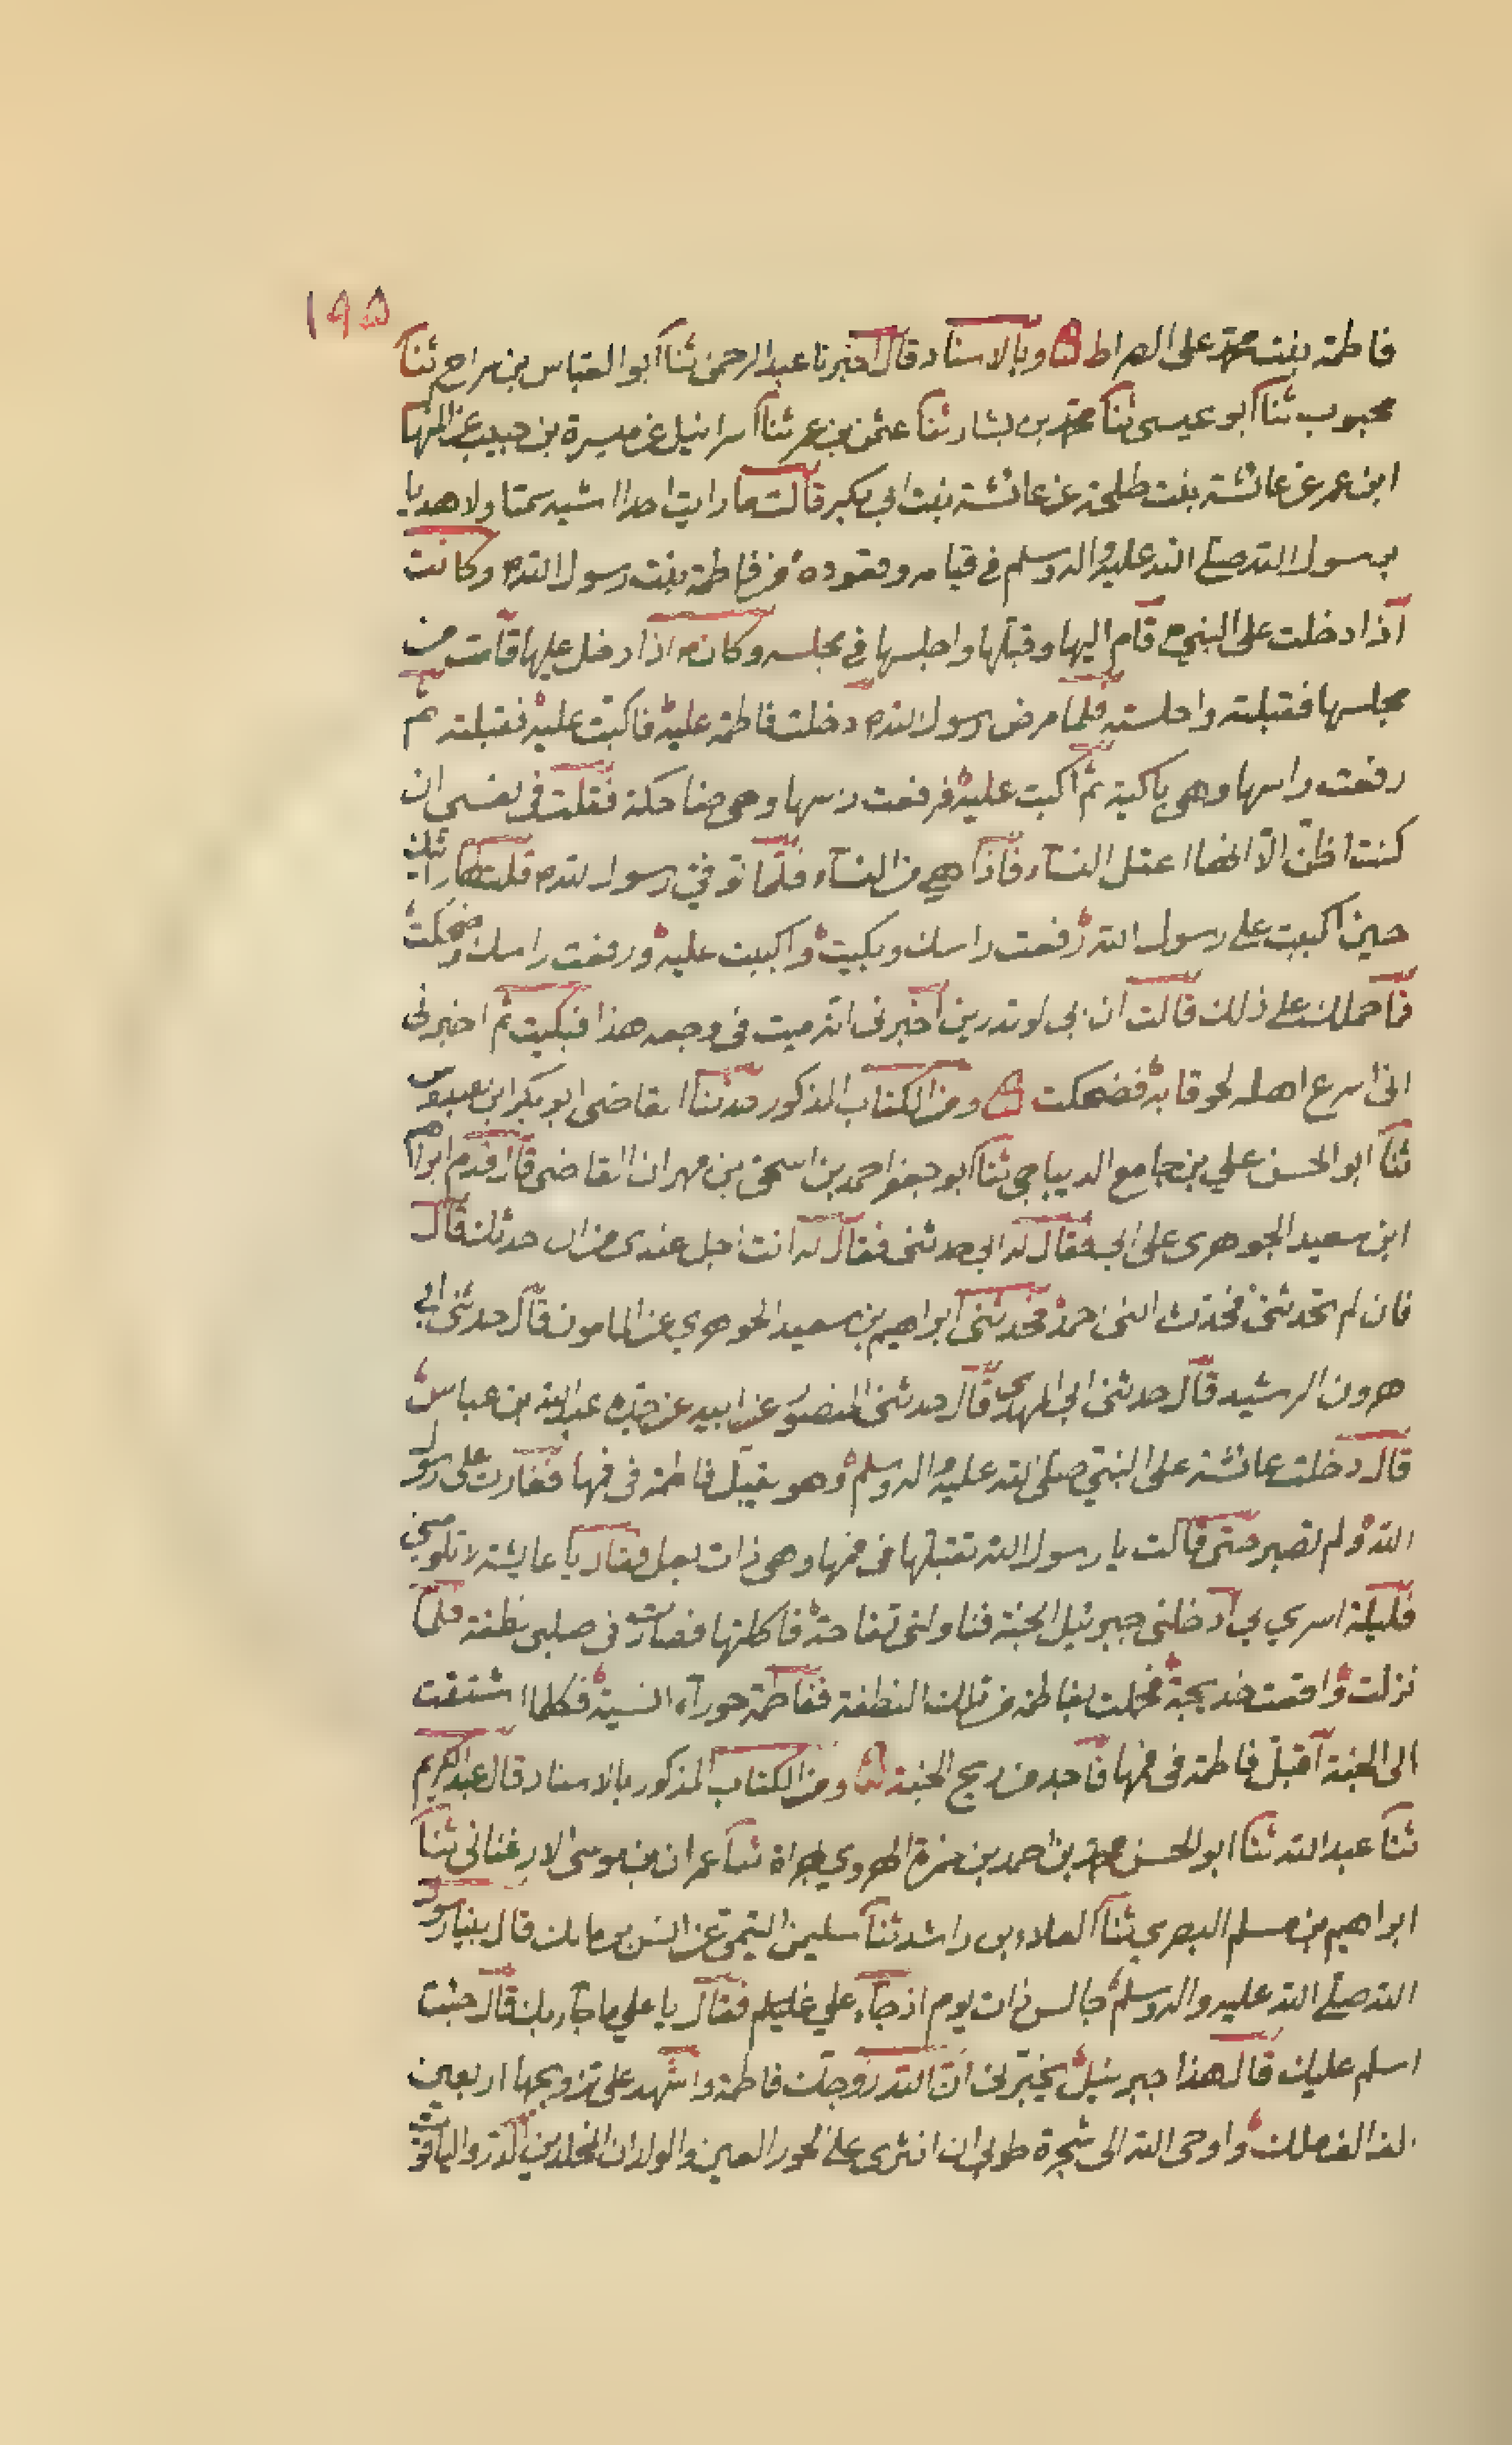 ١٩٥
فاطمة بنت محمد على الصراط ه وبالاسناد قال اخبرنا عبد الرحمن ثنا ابو العباس بن سراج ثنا
محبوب ثنا ابو عيسى ثنا محمد بن بشار ثنا عثمن بن عمر ثنا اسرائيل عن ميسرة بن حبيب عن المنها
ابن عمر عن عائشة بنت طلحة عن عائشة بنت ابي بكر قالت ما رايت احدا اشبه سمتا ولا هديا
برسول الله صلى الله عليه واله وسلم في قيامه وقعوده من فاطمة بنت رسول الله ص وكانت
اذا دخلت على النبي ص قام اليها وقبلها واجلسها في مجلسه وكان ص اذا دخل عليها قامت من
مجلسها فقبلته واجلسته فلما مرض رسول الله ص دخلت فاطمة عليه فاكبت عليه فقبلته ثم
رفعت راسها وهي باكية ثم اكبت عليه فرفعت رسها وهي ضاحكة فقلت في نفسي ان
كنت اظن الا انها اعقل النساء فاذا هي من النساء فلما توفي رسول الله ص قلت لها رايتك
حين اكببت على رسول الله فرفعت راسك وبكيت واكببت عليه ورفعت راسك وضحكت
فما حملك على ذلك قالت ان بي لو تدرين اخبرني انه ميت في وجعه هذا فبكيت ثم اخبرني
اني اسرع اهله لحوقا به فضحكت ه ومن الكتاب المذكور حدثنا القاضي ابو بكر ابن عبدوس
ثنا ابو الحسن علي بن جامع الديباجي ثنا ابو جعفر احمد بن اسحق بن مهران القاضي قال قدم ابراهيم
ابن سعيد الجوهري على ابي فقال له ابي حدثني فقال له انت اجل عندي من ان حدثك قال
فان لم تحدثني فحدث ابني احمد فحدثني ابراهيم بن سعيد الجوهري عن المامون قال حدثني ابي
هرون الرشيد قال حدثني ابي المهدي قال حدثني المنصور عن ابيه عن جده عبد الله بن عباس
قال دخلت عائشة على النبي صلى الله عليه واله وسلم وهو يقبل فاطمة في فمها فغارت على رسول
الله ولم تصبر حتى قالت يا رسول الله تقبلها في فمها وهي ذات بعل فقال يا عايشة لا تلوميني
فليلة اسري بي ادخلني جبرئيل الجنة فناولني تفاحة فاكلتها فصارت في صلبي نطفة فلما
نزلت واقعت خديجة فحملت بفاطمة من تلك النطفة ففاطمة حوراء انسية فكلما اشتقت
الى الجنة اقبل فاطمة في فمها فاجد من ريح الجنة ه ومن الكتاب المذكور بالاسناد قال عبد الكريم
ثنا عبد الله ثنا ابو الحسن محمد بن احمد بن حمزة الهروي بهراة ثنا عمران بن موسى الارغناني ثنا
ابراهيم بن مسلم البصري ثنا العلاء بن راشد ثنا سليمن التيمي عن انس بن مالك قال بينا رسول
الله صلى الله عليه واله وسلم جالس ذات يوم اذ جاء علي عليلم فقال يا علي ما جاء بك قال جئت
اسلم عليك قال هذا جبرئيل يخبرني ان الله زوجك فاطمة واشهد على تزويجها اربعين
الف الف ملك واوحى الله الى شجرة طوبى ان انثري على الحور العين والولدان المخلدين الدر والياقوت